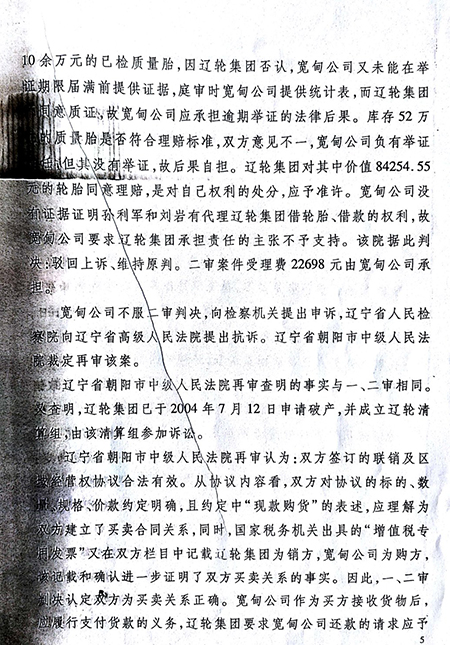 10 余万元的已检质量胎,因辽轮集团否认,宽甸公司又未能在举
证期限届满前提供证据,庭审时宽甸公司提供统计表,而辽轮集团
同意质证,故宽甸公司应承担逾期举证的法律后果。库存 52 万
的质量胎是否符合理赔标准,双方意见不一,宽甸公司负有举证
任,但其没有举证,故后果自担。辽轮集团对其中价值 84254.55
元的轮胎同意理赔,是对自己权利的处分,应予准许。宽甸公司没
证据证明孙利军和刘岩有代理辽轮集团借轮胎、借款的权利,故
宽甸公司要求辽轮集团承担责任的主张不予支持。该院据此判
决:驳回上诉、维持原判。二审案件受理费 22698 元由宽甸公司承
担。
宽甸公司不服二审判决,向检察机关提出申诉,辽宁省人民检
察院向辽宁省高级人民法院提出抗诉。辽宁省朝阳市中级人民法
院裁定再审该案。
辽宁省朝阳市中级人民法院再审查明的事实与一、二审相同。
又查明,辽轮集团已于 2004 年 7 月 12 日申请破产,并成立辽轮清
算组,由该清算组参加诉讼。
辽宁省朝阳市中级人民法院再审认为:双方签订的联销及区
经营权协议合法有效。从协议内容看,双方对协议的标的、数
规格、价款约定明确,且约定中“现款购货”的表述,应理解为
双方建立了买卖合同关系,同时,国家税务机关出具的“增值税专
用发票”又在双方栏目中记载辽轮集团为销方,宽甸公司为购方,
记载和确认进一步证明了双方买卖关系的事实。因此,一、二审
判决认定双方为买卖关系正确。宽甸公司作为买方接收货物后,
应履行支付货款的义务,辽轮集团要求宽甸公司还款的请求应予
5